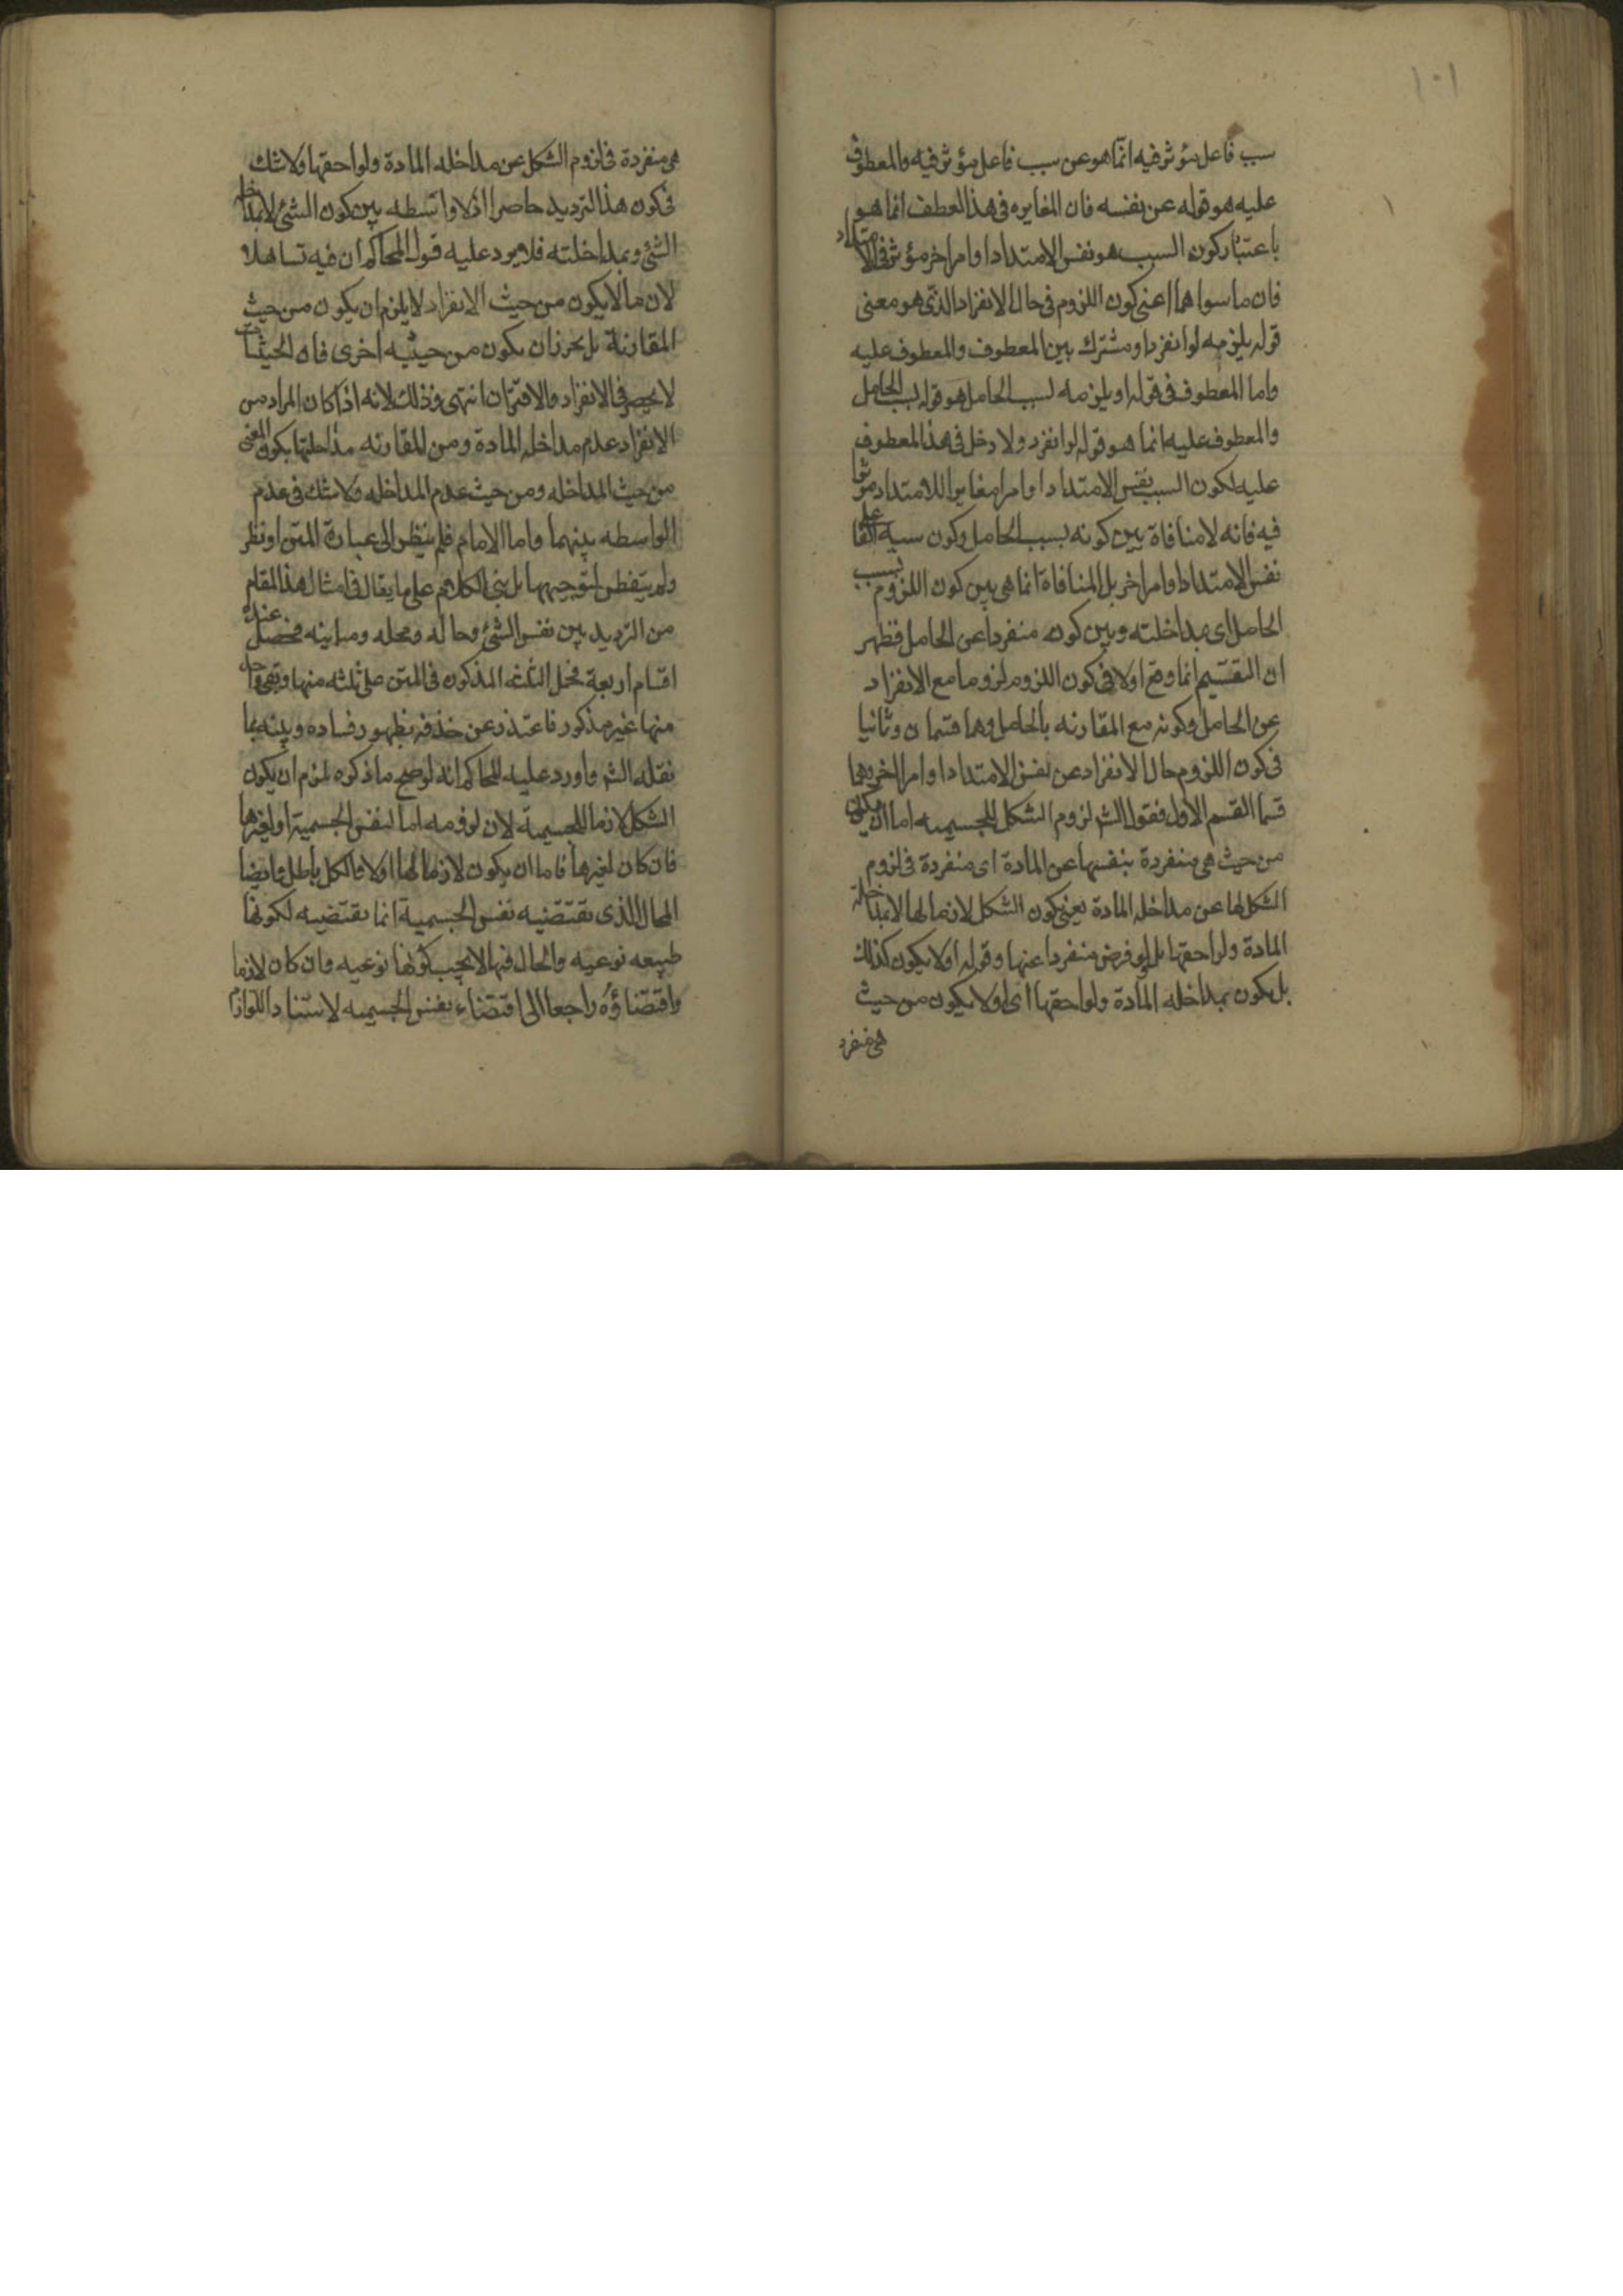 ١٠١
سبب فاعل مؤثر فيه انما هو عن سبب فاعل مؤثر فيه والمعطوف
عليه هو قوله عن نفسه فان المغايره فى هذا العطف انما هو
باعتبار كون السبب هو نفس الامتداد او امرا خر مؤثر فى الامتداد
فان ما سواهما اعنى كون اللزوم فى حال الانفراد الذى هو معنى
قوله يلزمه لو انفرد او مشترك بين المعطوف والمعطوف عليه
واما المعطوف فى قوله او يلزمه لسبب الحامل هو قوله لسبب الحامل
والمعطوف عليه انما هو قوله لو انفرد ولا دخل فى هذا المعطوف
عليه لكون السبب نفس الامتداد او امرا مغايرا للامتداد مؤثرا
فيه فانه لا منافاة بين كونه بسبب الحامل وكون سببه الفاعلى
نفس الامتداد او امرا خر بل المنافاة انما هى بين كون اللزوم بسبب
الحامل اى بمداخلته وبين كونه منفردا عن الحامل فظهر
ان التقسيم انما وقع اولا فى كون اللزوم لزوما مع الانفراد
عن الحامل وكونه مع المقارنه بالحامل وهما قسمان وثانيا
فى كون اللزوم حال الانفراد عن نفس الامتداد او امر اخر وهما
قسما القسم الاول فقول الش لزوم الشكل للجسميه اما ان يكون
من حيث هى منفردة بنفسها عن المادة اى منفردة فى لزوم
الشكل لها عن مداخله المادة يعنى كون الشكل لازما لها لا بمداخلة
المادة ولواحقها بل لو فرض منفردا عنها وقوله او لا يكون كذلك
بل يكون بمداخله المادة ولواحقها اى او لا يكون من حيث
هى منفرد
هى منفردة فى لزوم الشكل عن مداخله المادة ولواحقها ولا شك
فى كون هذا الترديد حاصرا اذ لا واسطه بين كون الشئ لا بمداخلة
الشئ وبمداخلته فلا يرد عليه قول المحاكم ان فيه تساهلا
لان ما لا يكون من حيث الانفراد لا يلزم ان يكون من حيث
المقارنة بل يجوز ان يكون من حيثيه اخرى فان الحيثيات
لا يحصر فى الانفراد والاقتران انتهى وذلك لانه اذا كان المراد من
الانفراد عدم مداخله المادة ومن المقارنه مداخلتها يكون المعنى
من حيث المداخله ومن حيث عدم المداخله ولا شك فى عدم
الواسطه بينهما واما الامام فلم ينظر الى عبارة المتن او نظر
ولم يتفطن لتوجيهها بل بنى الكلام على ما يقال فى امثال هذا المقام
من الترديد بين نفس الشئ وحاله ومحله ومباينه فحصل عنده
اقسام اربعة فحمل الثلثه المذكون فى المتن على ثلثه منها وبقى واحد
منها غير مذكور فاعتذر عن حذفه بظهور فساده وبينه بما
نقله الش واورد عليه المحاكم انه لو صح ما ذكوه لزم ان يكون
الشكل لازما للجسميه لان لزومه اما لنفس الجسمية او لغيرها
فان كان لغيرها فاما ان يكون لازما لها او لا والكل باطل وايضا
المحال الذى يقتضيه نفس الجسمية انما يقتضيه لكونها
طبيعه نوعيه والحال فيها لا يجب كونها نوعيه وان كان لازما
واقتضاؤه راجعا الى اقتضاء نفس الجسميه لاستناد اللوازم